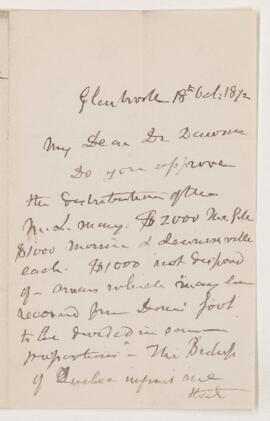 Glenbrook 18th Oct: 1872
My Dear Dr Dawson
Do you approve
the distribution of the
$2000
$1000 Morrin &
each. $1000 not disposed
of – arrears which "may be
received from
to be divided in same
proportion" – The Bishop
of Quebec informs me
that